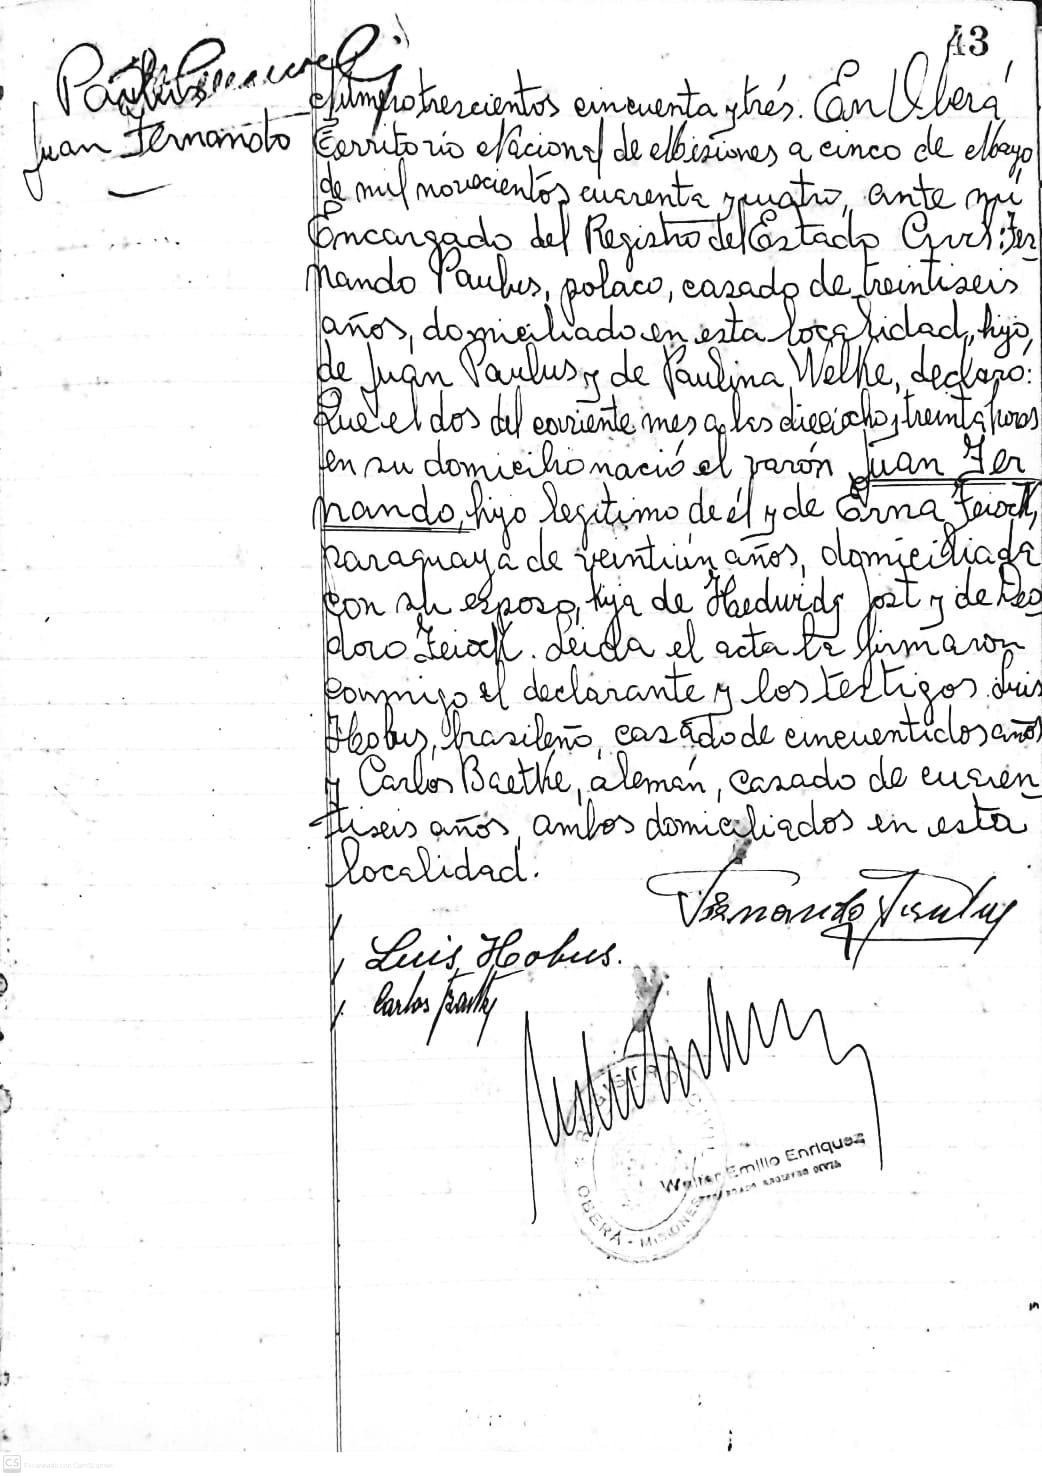 43
Paulus
Juan Fernando
Número trescientos cincuenta y trés. En Oberá
Territorio Nacional de Misiones a cinco de Mayo
de mil novecientos cuarenta y cuatro, ante mí
Encargado del Registro del Estado Civil: Fer
nando Paulus, polaco, casado de treintiseis
años, domiciliado en esta localidad, hijo,
de Juan Paulus y de Paulina Welke, declaró:
Que el dos del corriente mes a las dieciocho y treinta horas
en su domicilio nació el varón Juan Fer
nando, hijo legítimo de él y de Erna
paraguaya de veintiún años, domiciliada
con su esposo, hija de Hedwidg Jost y de Deo
doro. Leida el acta la firmaron
conmigo el declarante y los testigos Luis
Hobus, brasileño, casado de cincuentidos años
y Carlos Baethke, alemán, casado de cuaren
tiseis años, ambos domiciliados en esta
localidad.
Fernando Paulus
Luis Hobus.
Carlos
REGISTRO CIVIL
OBERÁ - MISIONES
Walter Emilio Enriquez
CS Escaneado con CamScanner